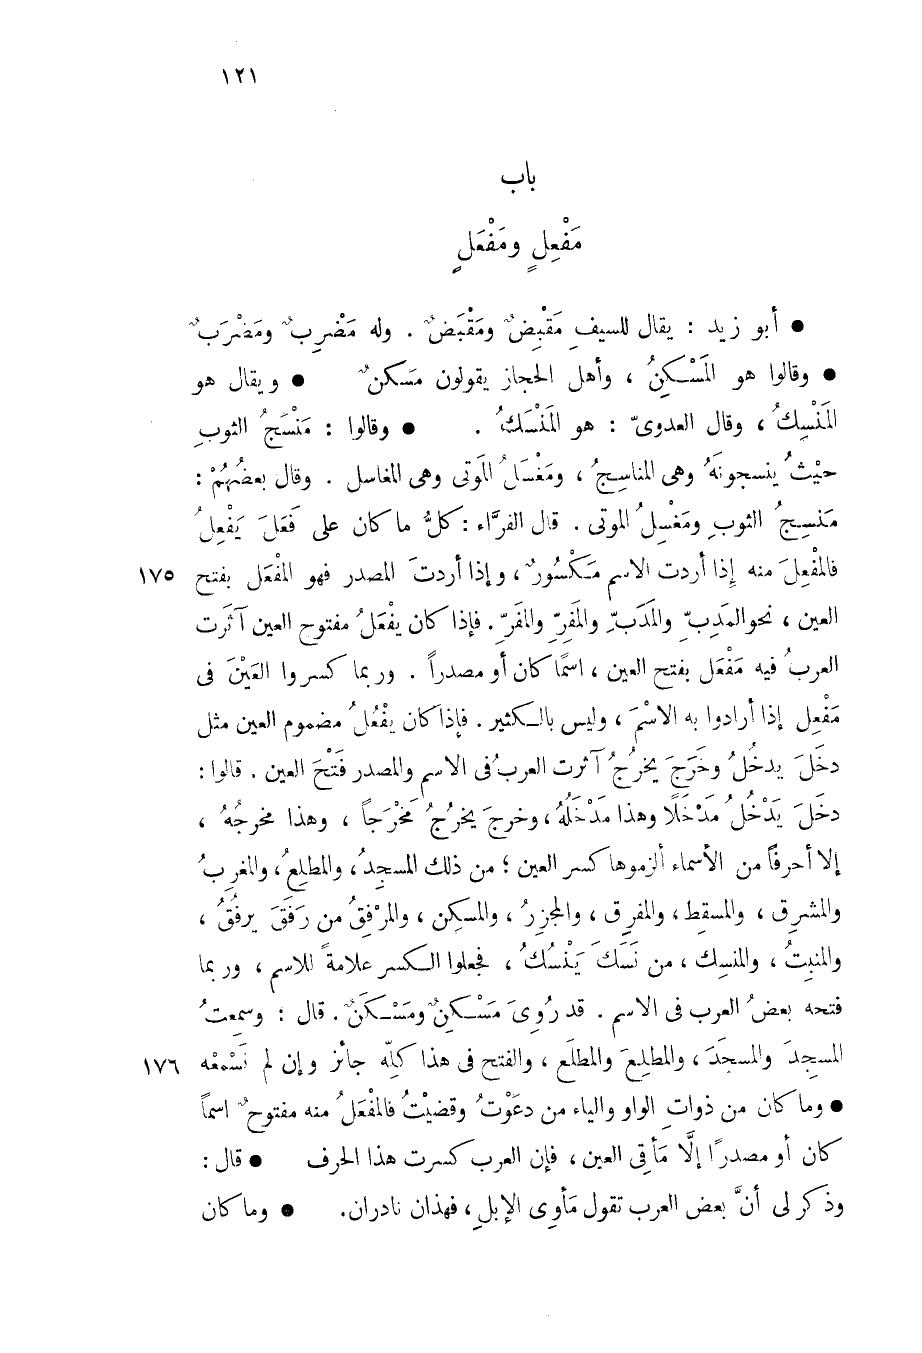 ١٢١
باب
مَفْعِلٍ ومَفْعَلٍ
● أبو زيد : يقال للسيفِ مَقْبِضٌ ومَقْبَضٌ . وله مَضْرِبٌ ومَضْرَبٌ
● وقالوا هو المَسْكِنُ ، وأهل الحجاز يقولون مَسكنٌ ● ويقال هو
المَنْسِكُ ، وقال العدوىّ : هو المَنْسَكُ . ● وقالوا : مَنْسَجُ الثوبِ
حيْثُ ينسجونَهُ وهى المناسِجُ ، ومَغْسَلُ المَوتى وهى المغاسل . وقال بعضُهُمْ :
مَنسِجُ الثوبِ ومَغسِلُ الموتى . قال الفرَّاء : كلُّ ما كان على فَعَلَ يَفْعِلُ
فالمْفِعِلَ منه إِذا أردت الاسم مَكْسُورٌ ، وإذا أردتَ المصدر فهو المَفْعَل بفتح ١٧٥
العين ، نحو المَدِبّ والمَدَبّ والمَفِرّ والمَفَرّ . فإذا كان يفْعَلُ مفتوح العين آثَرت
العربُ فيه مَفْعَل بفتح العين ، اسمًا كان أو مصدراً . وربما كسروا العَيْنَ فى
مَفْعِل إذا أرادوا به الاسْمَ ، وليس بالكثير . فإذا كان يفْعُلُ مضموم العين مثل
دخَلَ يدخُلُ وخَرَجَ يخرُجُ آثرت العربُ فى الاسم والمصدر فَتْحَ العين . قالوا :
دخَلَ يَدْخُلُ مَدْخَلًا وهذا مَدْخَلُهُ ، وخرجَ يخرُجُ مَخْرَجاً ، وهذا مخرجُهُ ،
إلا أحرفًا من الأسماء ألزموها كسر العين ؛ من ذلك المسجِدُ ، والمطلِعُ ، والمغرِبُ
والمشرِق ، والمسقِط ، والمفرِق ، والمجزِرُ ، والمسكِن ، والمرْفِقُ من رَفَقَ يرفُقُ ،
والمنبِتُ ، والمنسِك ، من نَسَكَ يَنْسُكُ ، فجعلوا الكسر علامةً للاسم ، وربما
فتحه بعضُ العرب فى الاسم . قد رُوِىَ مَسْكِنٌ ومَسْكَنٌ . قال : وسمِعتُ
المسجِدَ والمسجَدَ ، والمطلِعَ والمطلَع ، والفتح فى هذا كلِّه جائز وإن لم نَسْمعْه ١٧٦
● وما كان من ذواتِ الواو والياء من دعَوْتُ وقضيْتُ فالمَفْعَلُ منه مفتوحٌ اسماً
كان أو مصدرًا إلَّا مَأقِى العين ، فإن العرب كسرت هذا الحرف ● قال :
وذكر لى أنَّ بعض العرب تقول مَأوِى الإبلِ ، فهذان نادران . ● وما كان